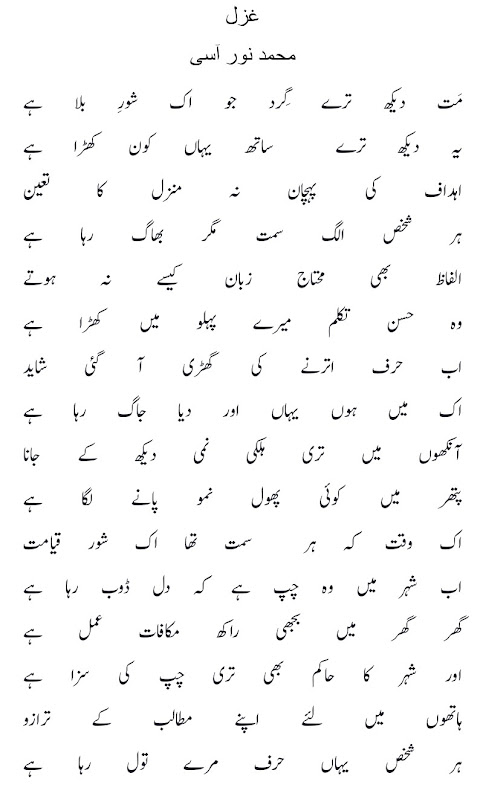 غزل
محمد نور آسی
مَت دیکھ ترے گِرد جو اک شورِ بلا ہے
یہ دیکھ ترے ساتھ یہاں کون کھڑا ہے
اہداف کی پہچان نہ منزل کا تعین
ہر شخص الگ سمت مگر بھاگ رہا ہے
الفاظ بھی محتاج زبان کیسے نہ ہوتے
وہ حسن تکلم میرے پہلو میں کھڑا ہے
اب حرف اترنے کی گھڑی آ گئی شاید
اک میں ہوں یہاں اور دیا جاگ رہا ہے
آنکھوں میں تری ہلکی نمی دیکھ کے جانا
پتھر میں کوئی پھول نمو پانے لگا ہے
اک وقت کہ ہر سمت تھا اک شور قیامت
اب شہر میں وہ چپ ہے کہ دل ڈوب رہا ہے
گھر گھر میں بجھی راکھ مکافات عمل ہے
اور شہر کا حاکم بھی تری چپ کی سزا ہے
ہاتھوں میں لئے اپنے مطالب کے ترازو
ہر شخص یہاں حرف مرے تول رہا ہے